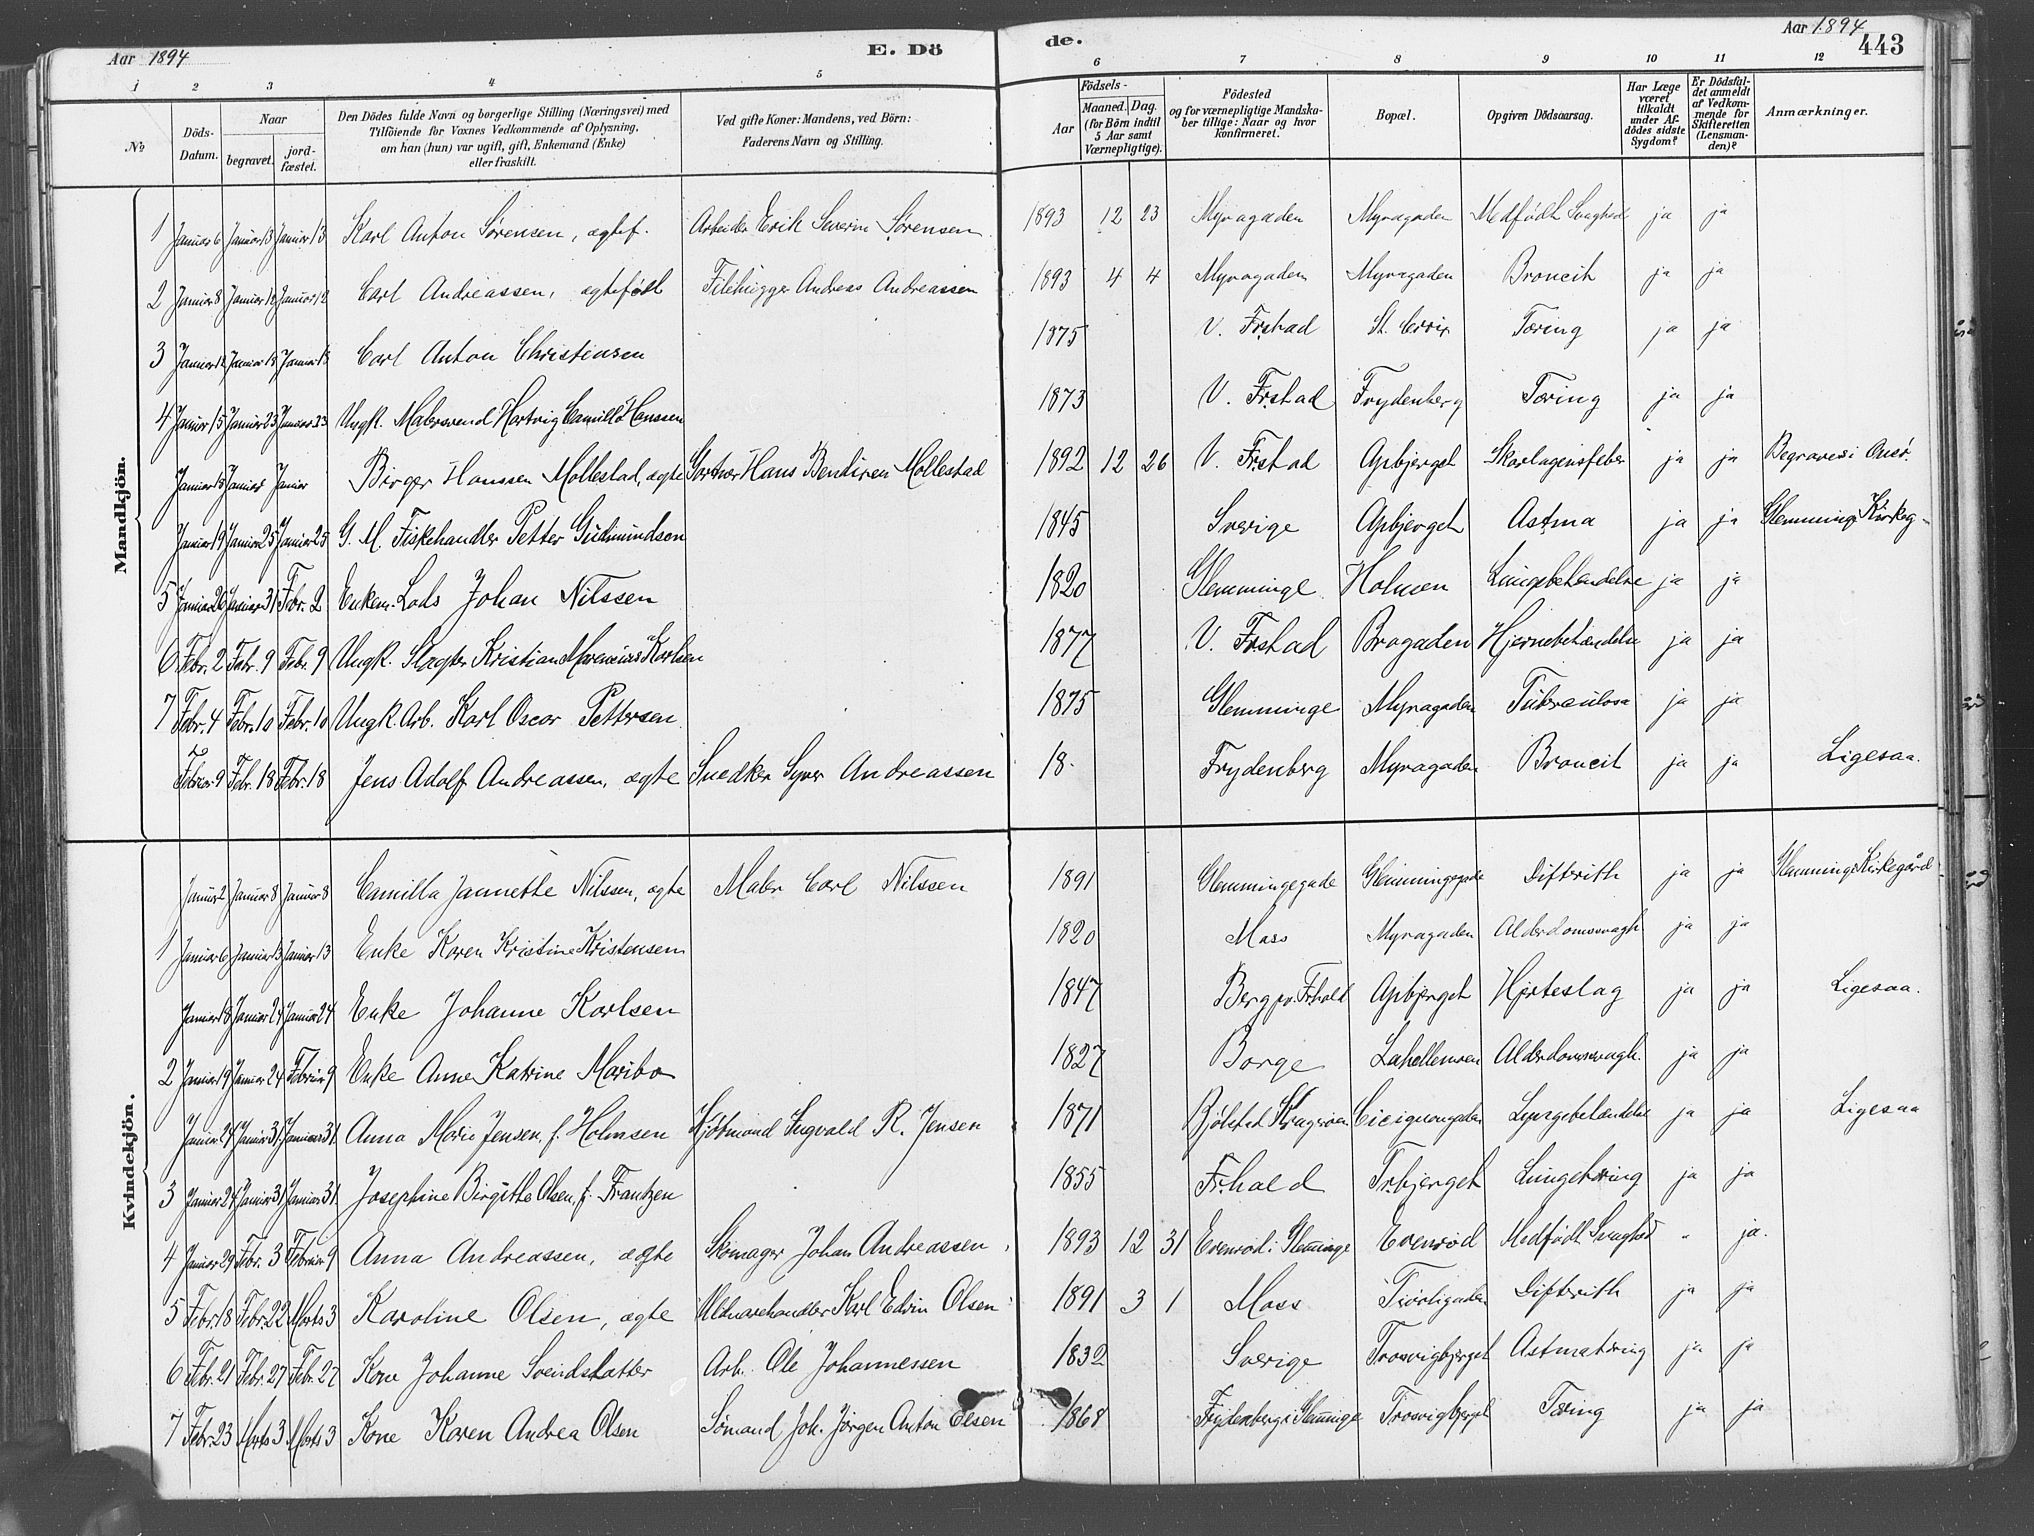 Aar 1894 E. Dö
de. Aar 1894 443
1 2 3 4 5 6 7 8 9 10 11 12
No
Döds-Datum.
Naar
begravet.
jord-fæstet.
Den Dödes fulde Navn og borgerlige Stilling (Næringsvei) med
Tilföiende for Voxnes Vedkommende af Oplysning,
om han (hun) var ugift, gift, Enkemand (Enke)
eller fraskilt.
Ved gifte Koner: Mandens, ved Börn:
Faderens Navn og Stilling.
Födsels-
Aar
Maaned. Dag.
(for Börn indtil
5 Aar samt
Værnepligtige).
Födested
og for værnepligtige Mandska-
ber tillige: Naar og hvor
konfirmeret.
Bopæl.
Opgiven Dödsaarsag.
Har Læge
været
tilkaldt
under Af-
dödes sidste
Sygdom?
Er Dödsfal-
det anmeldt
af Vedkom-
mende for
Skifteretten
(Lensman-
den)?
Anmærkninger.
Mandkjön.
1 Januar 6 Januar 13 Januar 13 Karl Anton Sörensen, ægtef. Arbeider Erik Severin Sörensen 1893 12 23 Myragaden Myragaden Medfödt Svaghed ja ja
2 Januar 8 Januar 12 Januar 12 Carl Andreassen, ægtefödt Filehugger Andreas Andreassen 1893 4 4 Myragaden Myragaden Broncit ja ja
3 Januar 12 Januar 18 Januar 18 Carl Anton Christiansen 1875 V. Frstad St. Croix Tæring ja ja
4 Januar 15 Januar 23 Januar 23 Ungk. Malersvend Hartvig Camillo Hanssen 1873 V. Frstad Frydenberg Tæring ja ja
Januar 18 Januar Januar Birger Hanssen Mollestad, ægte Gartner Hans Bendixen Mollestad 1892 12 26 V. Frstad Apbjerget Skarlagensfeber ja ja Begraves i Onsö.
Januar 19 Januar 25 Januar 25 G. M. Fiskehandler Petter Gudmundsen 1845 Sverige Apbjerget Astma ja ja Glemminge Kirkeg.
5 Januar 26 Januar 31 Febr. 2 Enkem. Lods Johan Nilssen 1820 Glemminge Holmen Lungebetændelse ja ja
6 Febr. 2 Febr. 9 Febr. 9 Ungk. Slagter Kristian Marenius Karlsen 1877 V. Frstad Brogaden Hjernebetændelse ja ja
7 Febr. 4 Febr. 10 Febr. 10 Ungk. Arb. Karl Oscar Pettersen 1875 Glemminge Myragaden Tuberculosa ja ja
Februar 9 Febr. 18 Febr. 18 Jens Adolf Andreassen, ægte Snedker Syver Andreassen 18 Frydenberg Myragaden Broncit ja ja Ligesaa.
Kvindekjön.
Januar 2 Januar 8 Januar 8 Camilla Jannette Nilssen, ægte Maler Carl Nilssen 1891 Glemmingegade Glemmingegade Difterith ja ja Glemminge Kirkegård
1 Januar 6 Januar 13 Januar 13 Enke Karen Kristine Kristensen 1820 Moss Myragaden Alderdomssvagh. ja ja
Januar 18 Januar 24 Januar 24 Enke Johanne Karlsen 1847 Berg pr. Frhald Apbjerget Hjerteslag ja ja Ligesaa.
2 Januar 19 Januar 24 Februar 9 Enke Anne Katrine Maribo 1827 Borge Lahellemoen Alderdomssvagh. ja ja
Januar 24 Januar 31 Januar 31 Anna Marie Jensen, f. Holmsen Kjöbmand Sigvald R. Jensen 1871 Kragerøen Cicignongaden Lungebetændelse ja ja Ligesaa
3 Januar 24 Januar 31 Januar 31 Josephine Birgitte Olsen, f. Frantzen 1855 Frhald Trbjerget Lungetæring ja ja
4 Januar 29 Febr. 3 Februar 9 Anna Andreassen, ægte Skomager Johan Andreassen 1893 12 31 Evenröd i Glemminge Evenröd Medfödt Svaghed " ja.
5 Febr. 18 Febr. 22 Marts 3 Karoline Olsen, ægte Uldvarehandler Karl Edvin Olsen 1891 3 1 Moss Tivoligaden Difterith ja ja
6 Febr. 21 Febr. 27 Febr. 27 Kone Johanne Svendsdatter Arb. Ole Johannessen 1832 Sverige Trosvigbjerget Astmatæring ja ja
7 Febr. 23 Marts 3 Marts 3 Kone Karen Andrea Olsen Sömand Joh. Jörgen Anton Olsen 1868 Frydenberg i Glemminge Trosvigbjerget Tæring ja ja